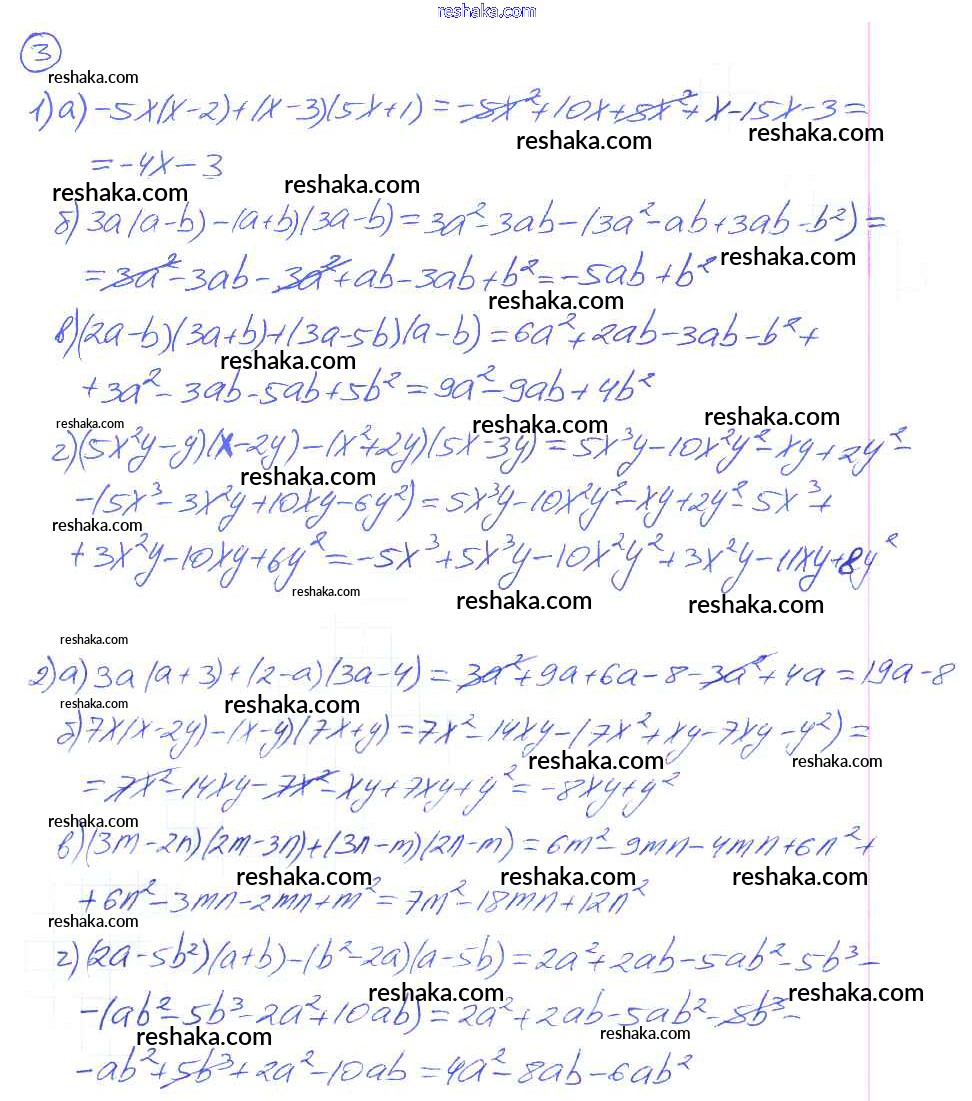 reshaka.com
3
reshaka.com
1) а) -5x(x-2)+(x-3)(5x+1)=-5x²+10x+5x²+x-15x-3=
reshaka.com reshaka.com
=-4x-3
reshaka.com reshaka.com
б) 3a(a-b)-(a+b)(3a-b)=3a²-3ab-(3a²-ab+3ab-b²)=
reshaka.com
=3a²-3ab-3a²+ab-3ab+b²=-5ab+b²
reshaka.com
в) (2a-b)(3a+b)+(3a-5b)(a-b)=6a²+2ab-3ab-b²+
reshaka.com
+3a²-3ab-5ab+5b²=9a²-9ab+4b²
reshaka.com reshaka.com reshaka.com
г) (5x²y-y)(x-2y)-(x²+2y)(5x-3y)=5x³y-10x²y²-xy+2y²-
reshaka.com
-(5x³-3x²y+10xy-6y²)=5x³y-10x²y²-xy+2y²-5x³+
reshaka.com
+3x²y-10xy+6y²=-5x³+5x³y-10x²y²+3x²y-11xy+8y²
reshaka.com reshaka.com reshaka.com
reshaka.com
2) а) 3a(a+3)+(2-a)(3a-4)=3a²+9a+6a-8-3a²+4a=19a-8
reshaka.com reshaka.com
б) 7x(x-2y)-(x-y)(7x+y)=7x²-14xy-(7x²+xy-7xy-y²)=
reshaka.com reshaka.com
=7x²-14xy-7x²-xy+7xy+y²=-8xy+y²
reshaka.com
в) (3m-2n)(2m-3n)+(3n-m)(2n-m)=6m²-9mn-4mn+6n²+
reshaka.com reshaka.com reshaka.com
+6n²-3mn-2mn+m²=7m²-18mn+12n²
reshaka.com
г) (2a-5b²)(a+b)-(b²-2a)(a-5b)=2a²+2ab-5ab²-5b³-
reshaka.com reshaka.com
-(ab²-5b³-2a²+10ab)=2a²+2ab-5ab²-5b³-
reshaka.com reshaka.com
-ab²+5b³+2a²-10ab=4a²-8ab-6ab²